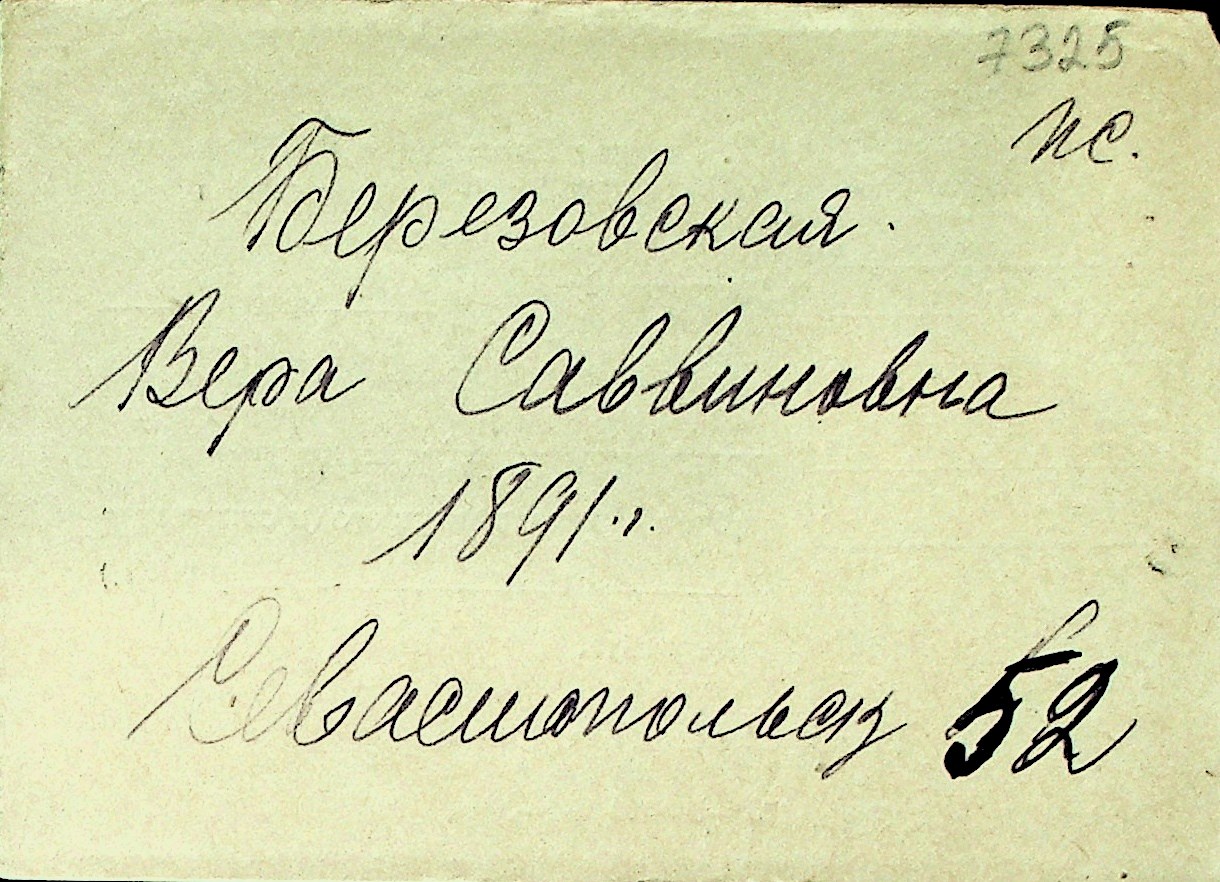 7325
пс.
Березовская.
Вера Саввиновна
1891 г.
Севастопольск 52